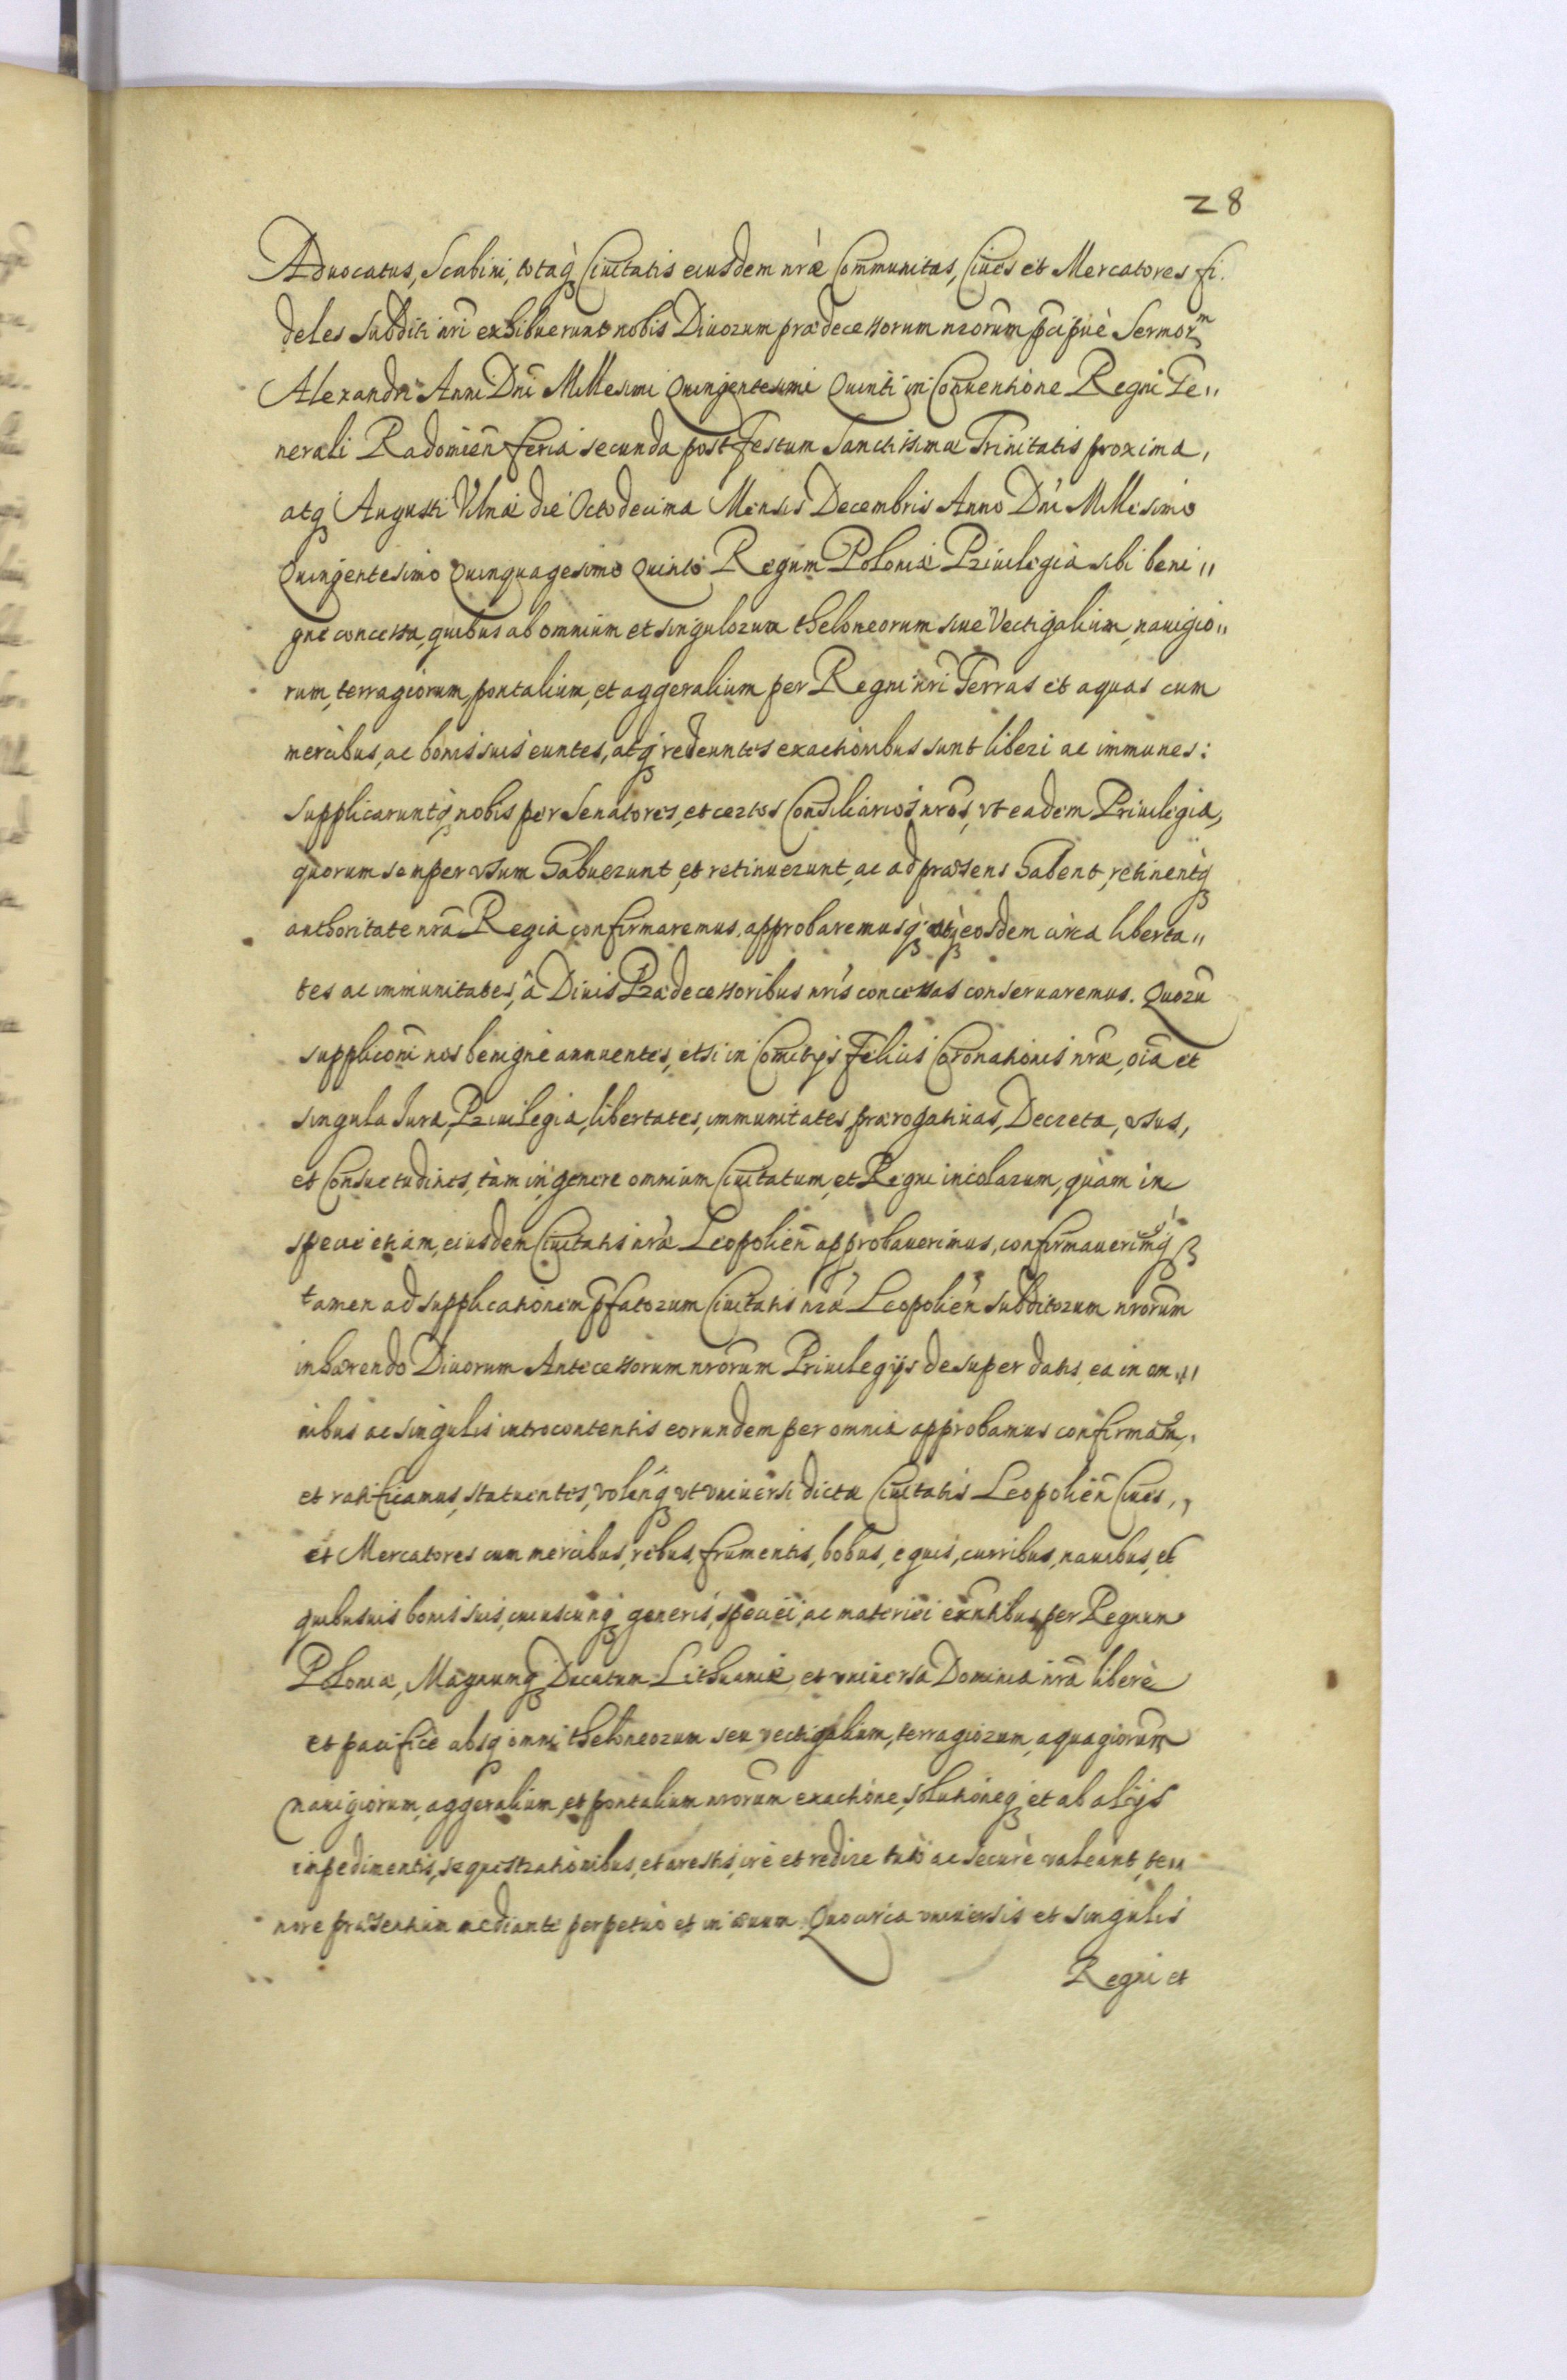 28
Aduocatus, Scabini, totaq́ʒ Ciuitatis eiusdem nrǽ Communitas, Ciues et Mercatores fi.
deles subditi nr̃i exhibuerunt nobis Diuorum prædecessorum nrorum̃ p̃cipuè Sermorᵐ
Alexandri Anni Dnĩ Millesimi Quingentesimi Quinti in Conuentione Regni Ge„
nerali Radomien̄ feria secunda post festum Sanctissimæ Trinitatis proxima,
atqʒ Augusti Vilnæ die Octodecima Mensis Decembris Anno Dnĩ Millesimo
Quingentesimo Quinquagesimo Quinto Regum Poloniæ Priuilegia sibi beni„
gnè concessa, quibus ab omnium et singulorum theloneorum siue Vectigalium, nauigio„
rum, terragiorum, pontalium, et aggeralium per Regni nr̃i Terras et aquas cum
mercibus, ac bonis suis euntes, atqʒ redeuntes exactionibus sunt liberi ac immunes:
supplicaruntq́ʒ nobis per Senatores, et certos Consiliarios nrõs, vt eadem Priuilegia,
quorum semper vsum habuerunt, et retinuerunt, ac ad præsens habent, retinentq́ʒ
authoritate nrã Regia confirmaremus, approbaremusq́ʒ atq́ʒ eosdem circa liberta„
tes ac immunitates, â Diuis Prædecessoribus nrĩs concessas conseruaremus. Quorũ
supplicoñi nos benignè annuentes, etsi in Comitijs felicis Coronationis nræ̃, oiã et
singula Iura, Priuilegia, libertates, immunitates, prærogatiuas, Decreta, vsus,
et Consuetudines, tàm in genere omnium Ciuitatum, et Regni incolarum, quàm in
specie etiam, eiusdem Ciuitatis nræ Leopolien̄ approbauerimus, confirmauerimq́ʒ
tamen ad supplicationem p̃fatorum Ciuitatis nræ Leopolien̄ subditorum nrorum̃
inhærendo Diuorum Antecessorum nrorum̃ Priuilegijs desuper datis, ea in om„
nibus ac singulis introcontentis eorundem per omnia approbamus confirmam̃,
et ratificamus, statuentes, volen̄qʒ vt vniuersi dictæ Ciuitatis Leopolien̄ Ciues,
et Mercatores cum mercibus, rebus, frumentis, bobus, equis, curribus, nauibus, et
quibusuis bonis suis, cuiuscunqʒ generis, speciei, ac materiei exñtibus per Regnum
Poloniæ, Magnumqʒ Ducatum Lithuaniæ, et vniuersa Dominia nrã liberè
et pacificè absqʒ omni theloneorum seu vectigalium, terragiorum, aquagiorum
nauigiorum, aggeralium, et pontalium nrorum̃ exactione, solutioneqʒ et ab alijs
inpedimentis, sequestrationibus, et arestis, ire et redire tutò ac securè valeant, te„
nore præsentium mediante perpetuò et in æuum. Quocirca vniuersis et singulis
Regni et